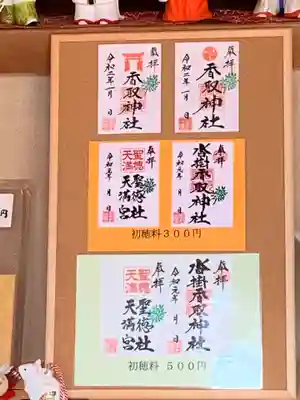 奉拝
香取神社
令和二年一月 日
奉拝
香取神社
令和二年一月 日
奉拝
聖徳社
天満宮
聖徳
天満
令和元年 月 日
奉拝
香取神社
令和元年 月 日
初穂料300円
奉拝
聖徳社
天満宮
聖徳
天満
奉拝
香取神社
令和元年 月 日
初穂料 500円
円